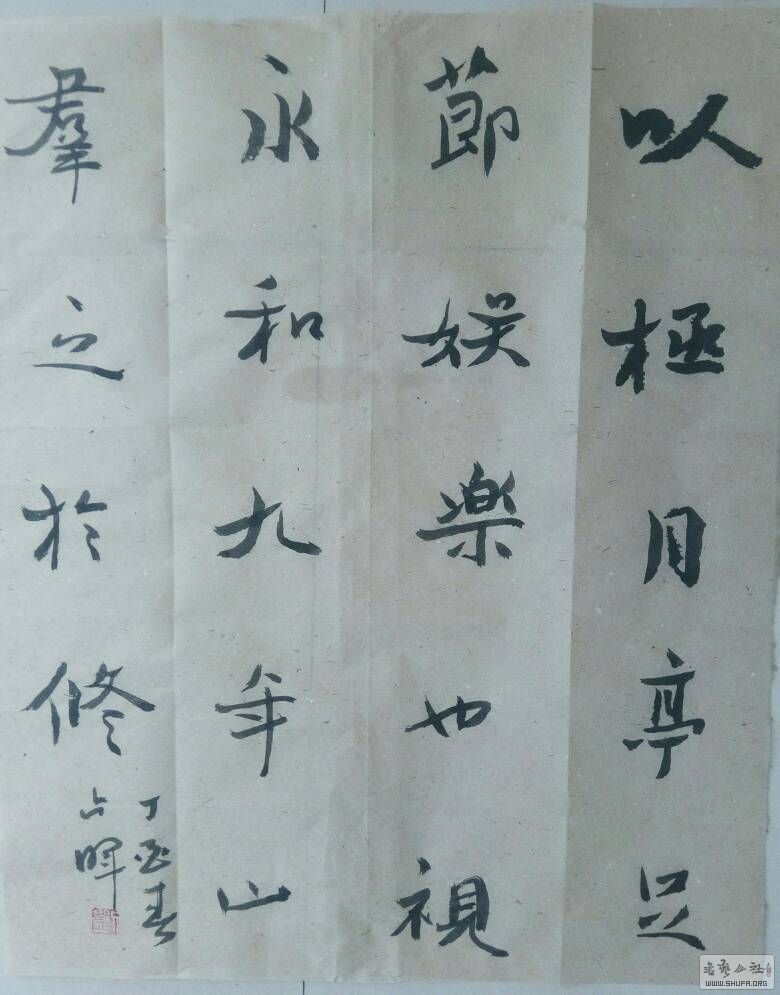 以極月亭足
節娱樂也視
永和九年山
羣之於修
丁酉春
占暉
书艺公社
WWW.SHUFA.ORG